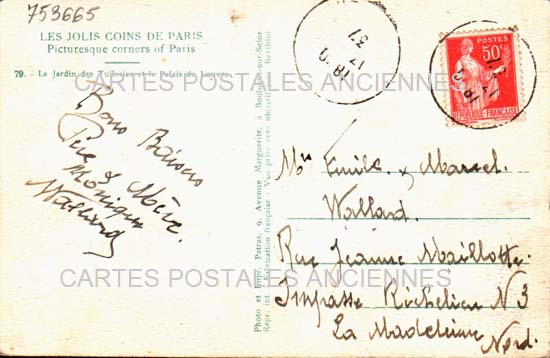 753665
LES JOLIS COINS DE PARIS
Picturesque corners of Paris
79. - Le Jardin des Tuileries et le Palais du Louvre
CARTES POSTALES ANCIENNES
Bons Baisers
Père & Mère
Monique
Photo et Impr. Patras, 9, Avenue Marguerite, à Boulogne-sur-Seine
Repr. int. - Fabrication française - Vue prise avec objectif Berthiot
18 30
17
37
POSTES
50c
REPUBLIQUE-FRANÇAISE
Emile & Marcel
Wallard
Rue Jeanne Maillotte
CARTES POSTALES ANCIENNES
Impasse Richelieu N 3
La Madeleine
Nord.